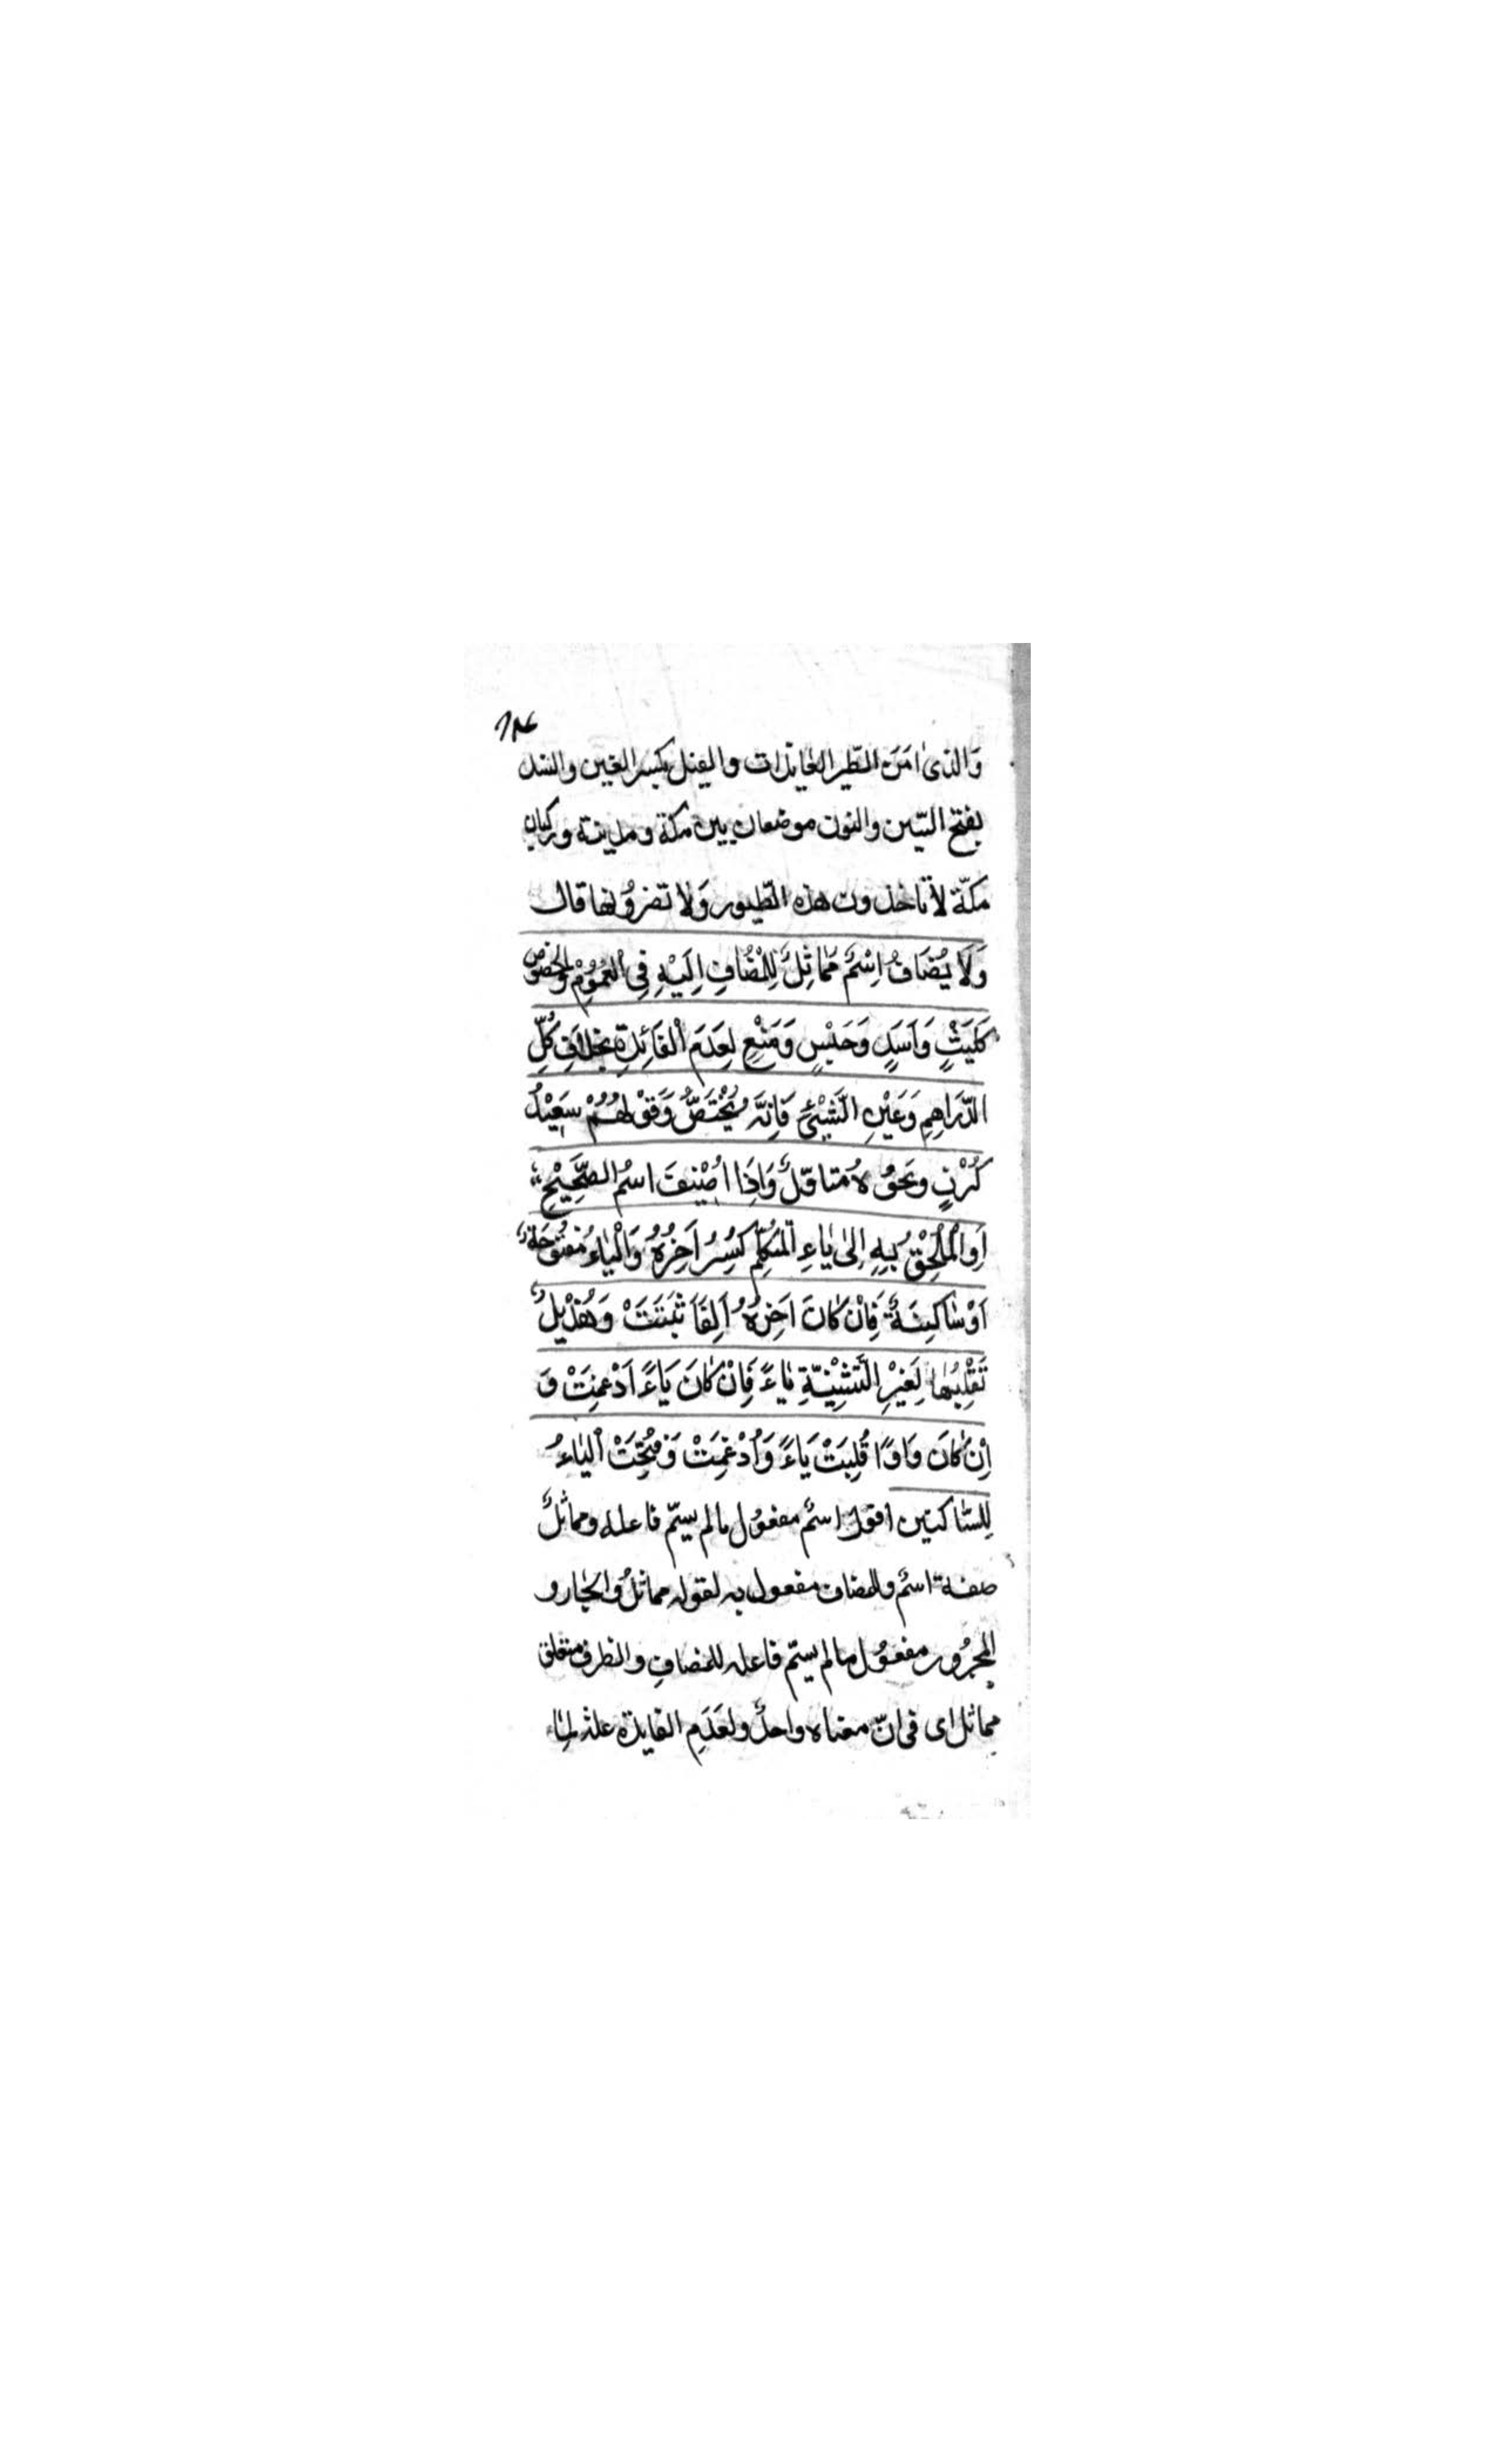 والذى امَنَ الطّير العايذات والغيل بكسر الغين والسند
بفتح السّين والنون موضعان بين مكة ومدينة وركبان
مكّة لا تاخذون هذه الطّيور وَلا تضرّونها قال
وَلَا يُضَافُ اِسْمٌ مُمَاثِلٌ لِلْمُضَافِ اِلَيْهِ فِى الْعُمُوْمِ وَالخصُوْصِ
كَلَيْثٍ وَاَسَدٍ وَحَبْسٍ وَمَنْعٍ لِعَدَمِ الْفَائِدَةِ بِخِلَافِ كُلِّ
الدَّرَاهِمِ وَعَيْنِ الشَّيْئِ فَاِنَّهُ يَخْتَصُّ وَقَوْلُهُمْ سَعِيْدُ
كُرْزٍ ونحوُهُ متاوّلٌ وَاِذَا اُضِيْفَ اسمُ الصَّحِيْحِ
اَوِ الْمُلْحَقُ بِهِ اِلىٰ يَاءِ الْمُتَكَلِّمِ كُسِرُ اٰخِرُهُ وَالْيَاءُ مَفْتُوْحَةٌ
اَوْ سَاكِنَةٌ فَاِنْ كَانَ اٰخِرُهُ اَلِفًا ثَبَتَتْ وَهُذَيْلٌ
تَقْلِبُهَا لِغَيْرِ التَّثْنِيَّةِ يَاءً فَاِنْ كَانَ يَاءً اُدْغِمَتْ وَ
اِنْ كَانَ وَاوًا قُلِبَتْ يَاءً وَاُدْغِمَتْ وَفُتِحَتْ الْيَاءُ
لِلسّاكنين اقول اسمٌ مفعُول مالم يسمّ فاعله ومماثلٌ
صفة اسمٌ وللمضاف مفعول به لقوله مماثلٌ والجارو
المجرُور مفعُول مالم يسمّ فاعله للمضافِ والظرف متعلق
بمماثل اى فى انّ معناه واحدٌ ولعَدَمِ الفايدة علة لِمَا